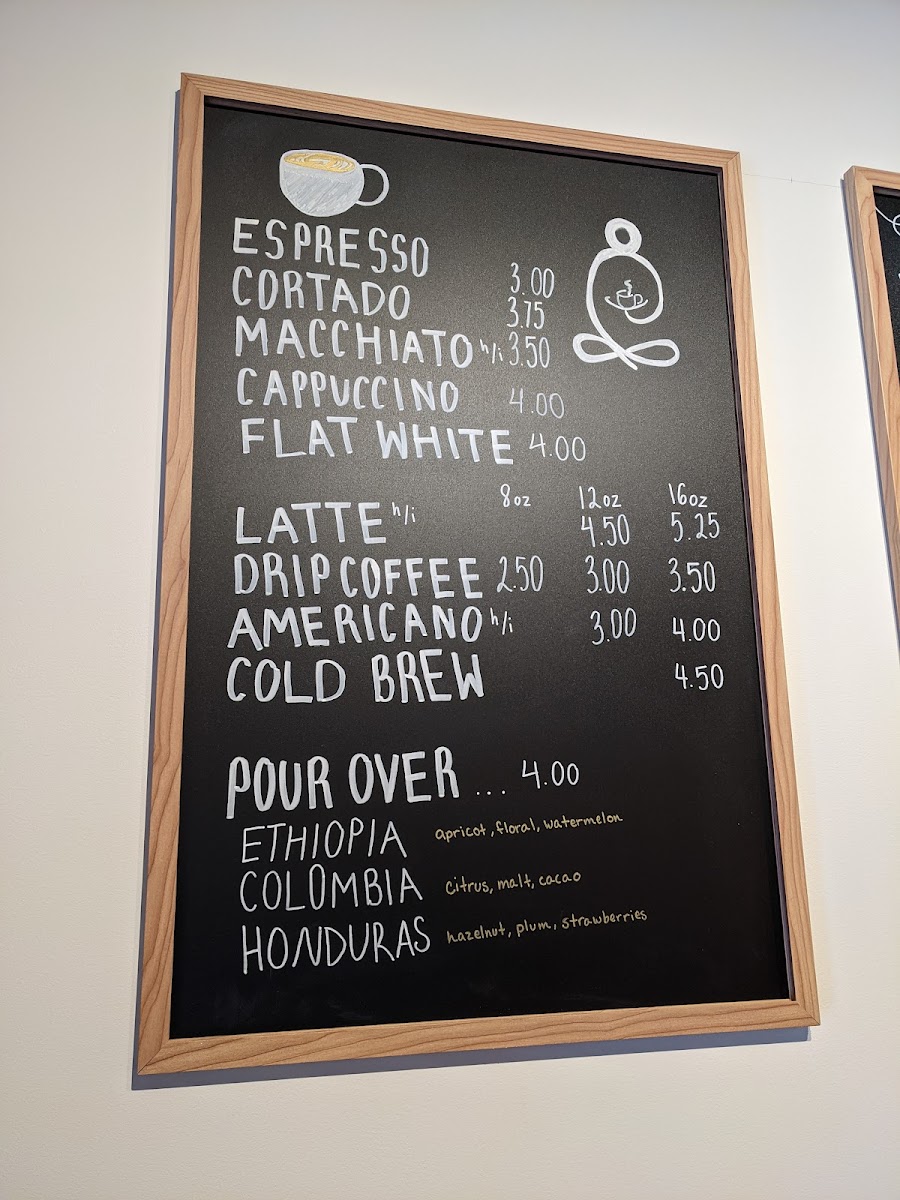 ESPRESSO 3.00
CORTADO 3.75
MACCHIATO h/i 3.50
CAPPUCCINO 4.00
FLAT WHITE 4.00
8oz 12oz 16oz
LATTE h/i 4.50 5.25
DRIP COFFEE 2.50 3.00 3.50
AMERICANO h/i 3.00 4.00
COLD BREW 4.50
POUR OVER ... 4.00
ETHIOPIA apricot, floral, watermelon
COLOMBIA citrus, malt, cacao
HONDURAS hazelnut, plum, strawberries